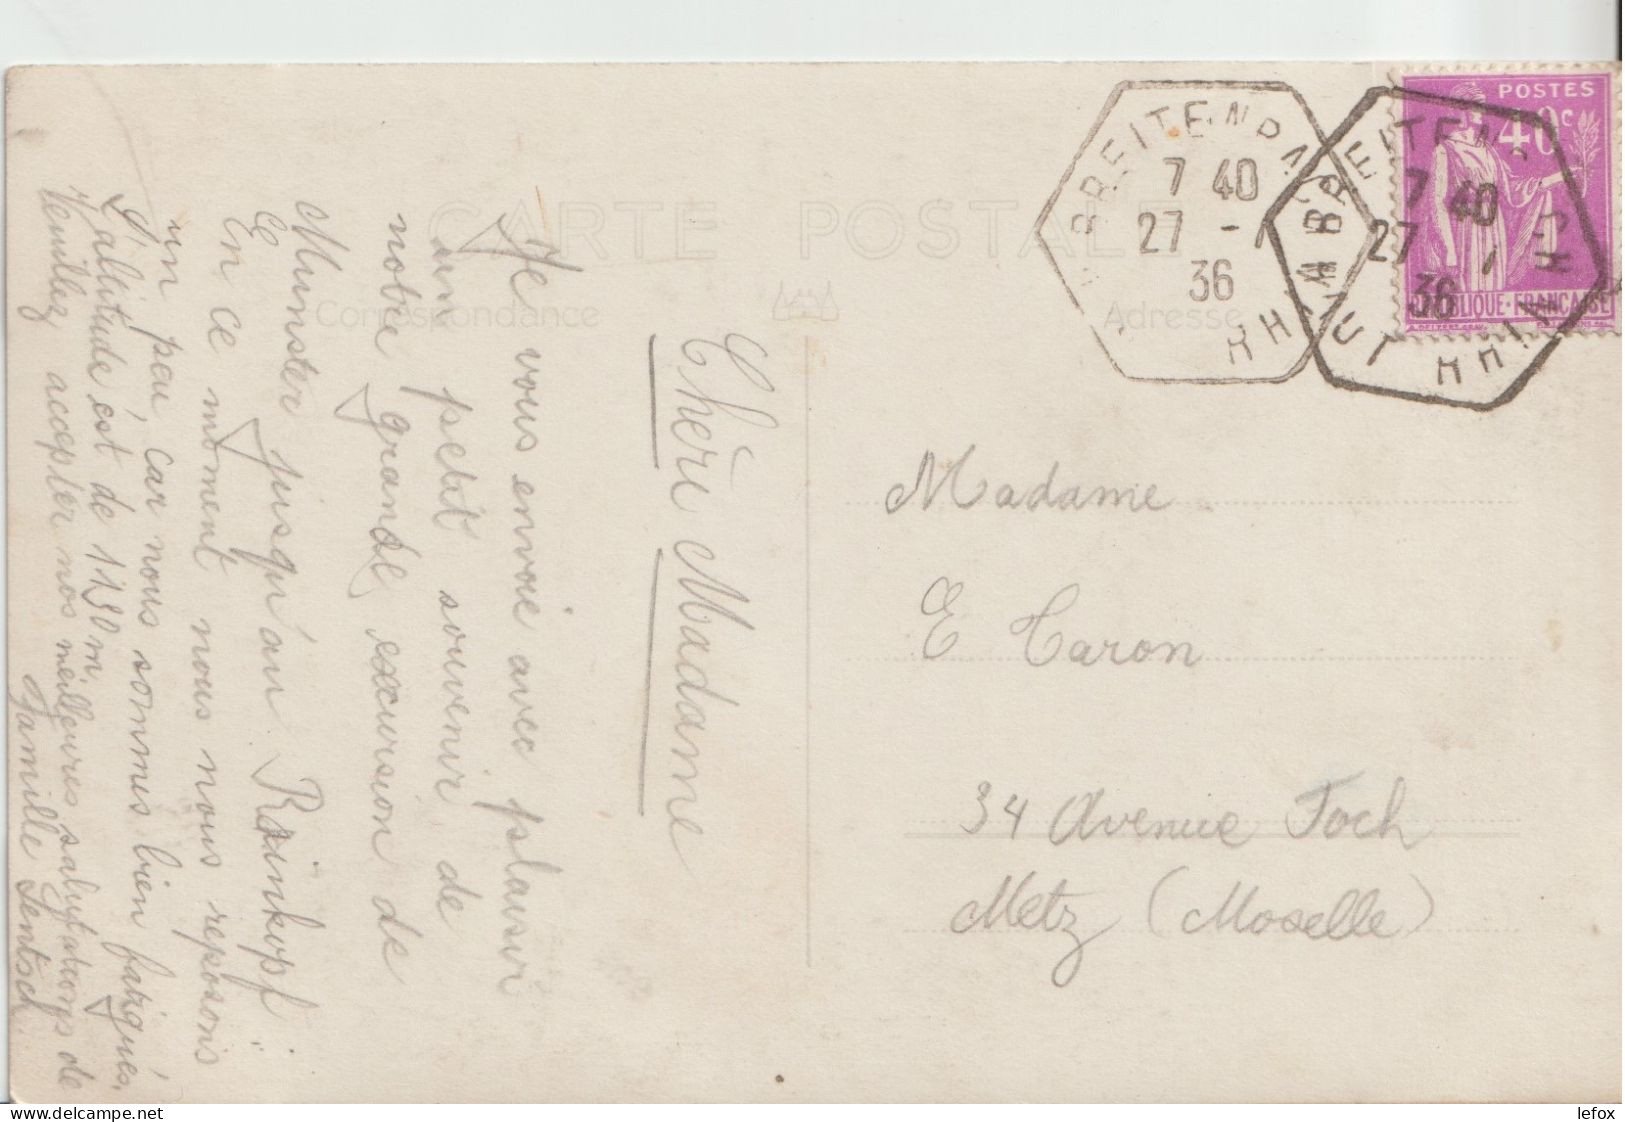 CARTE POSTALE
Correspondance
Adresse
Chère Madame
Je vous envoie avec plaisir
un petit souvenir de
notre grande excursion de
Munster jusqu'au Rainkopf.
En ce moment nous nous reposons
un peu, car nous sommes bien fatigués.
L'altitude est de 1130 m.
Veuillez accepter nos meilleures salutations de
Famille Jentsch.
Madame
E Caron
34 Avenue Foch
Metz (Moselle)
BREITENBACH
7 40
27 -
36
RHIN
BREITENBACH
7 40
27 -
36
HAUT RHIN
POSTES
40c
REPUBLIQUE·FRANCAISE
www.delcampe.net
lefox